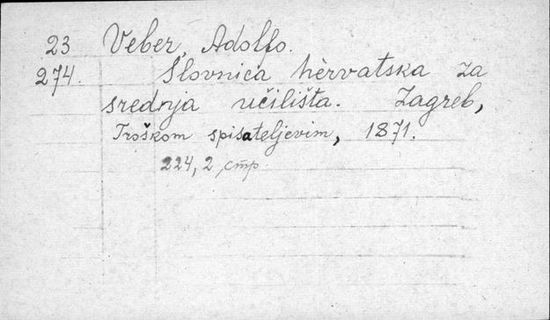 23 Veber, Adolfo.
274. Slovnica hèrvatska za
srednja učilišta. Zagreb,
Troškom spisateljevim, 1871.
224, 2 стр.